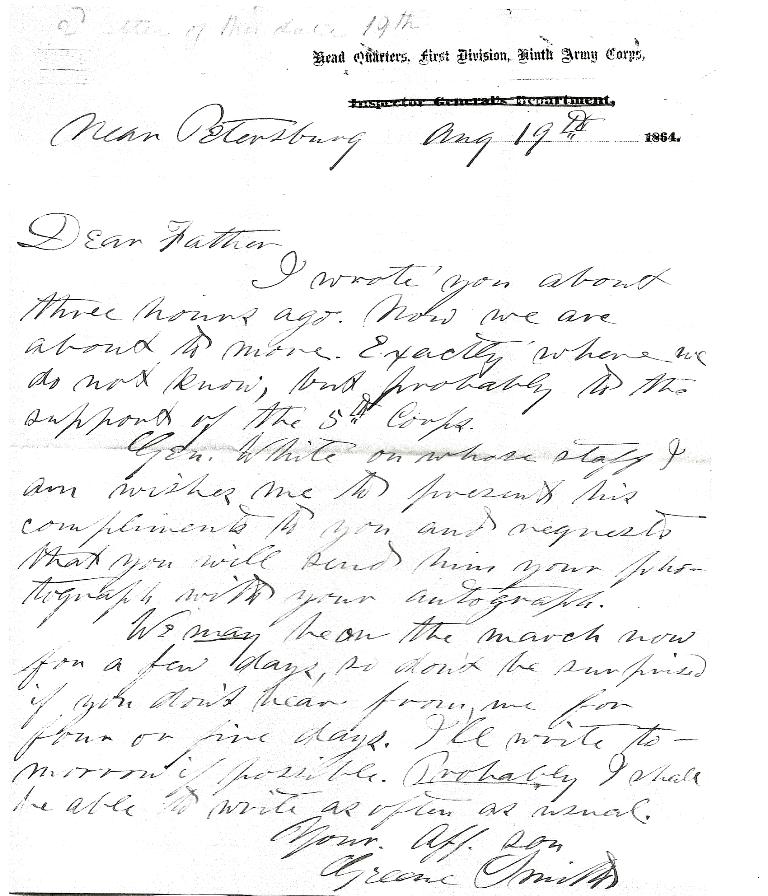 2d letter of this date 19th
Head Quarters, First Division, Ninth Army Corps,
Inspector General's Department,
Near Petersburg Aug 19th 1864.
Dear Father
I wrote you about
three hours ago. Now we are
about to move. Exactly where we
do not know, but probably to the
support of the 5th Corps.
Gen. White on whose staff I
am wishes me to present his
compliments to you and requests
that you will send him your pho-
tograph with your autograph.
We may be on the march now
for a few days, so don't be surprised
if you don't hear from me for
four or five days. I'll write to-
morrow if possible. Probably I shall
be able to write as often as usual.
Your. Aff. son
Greene Smith